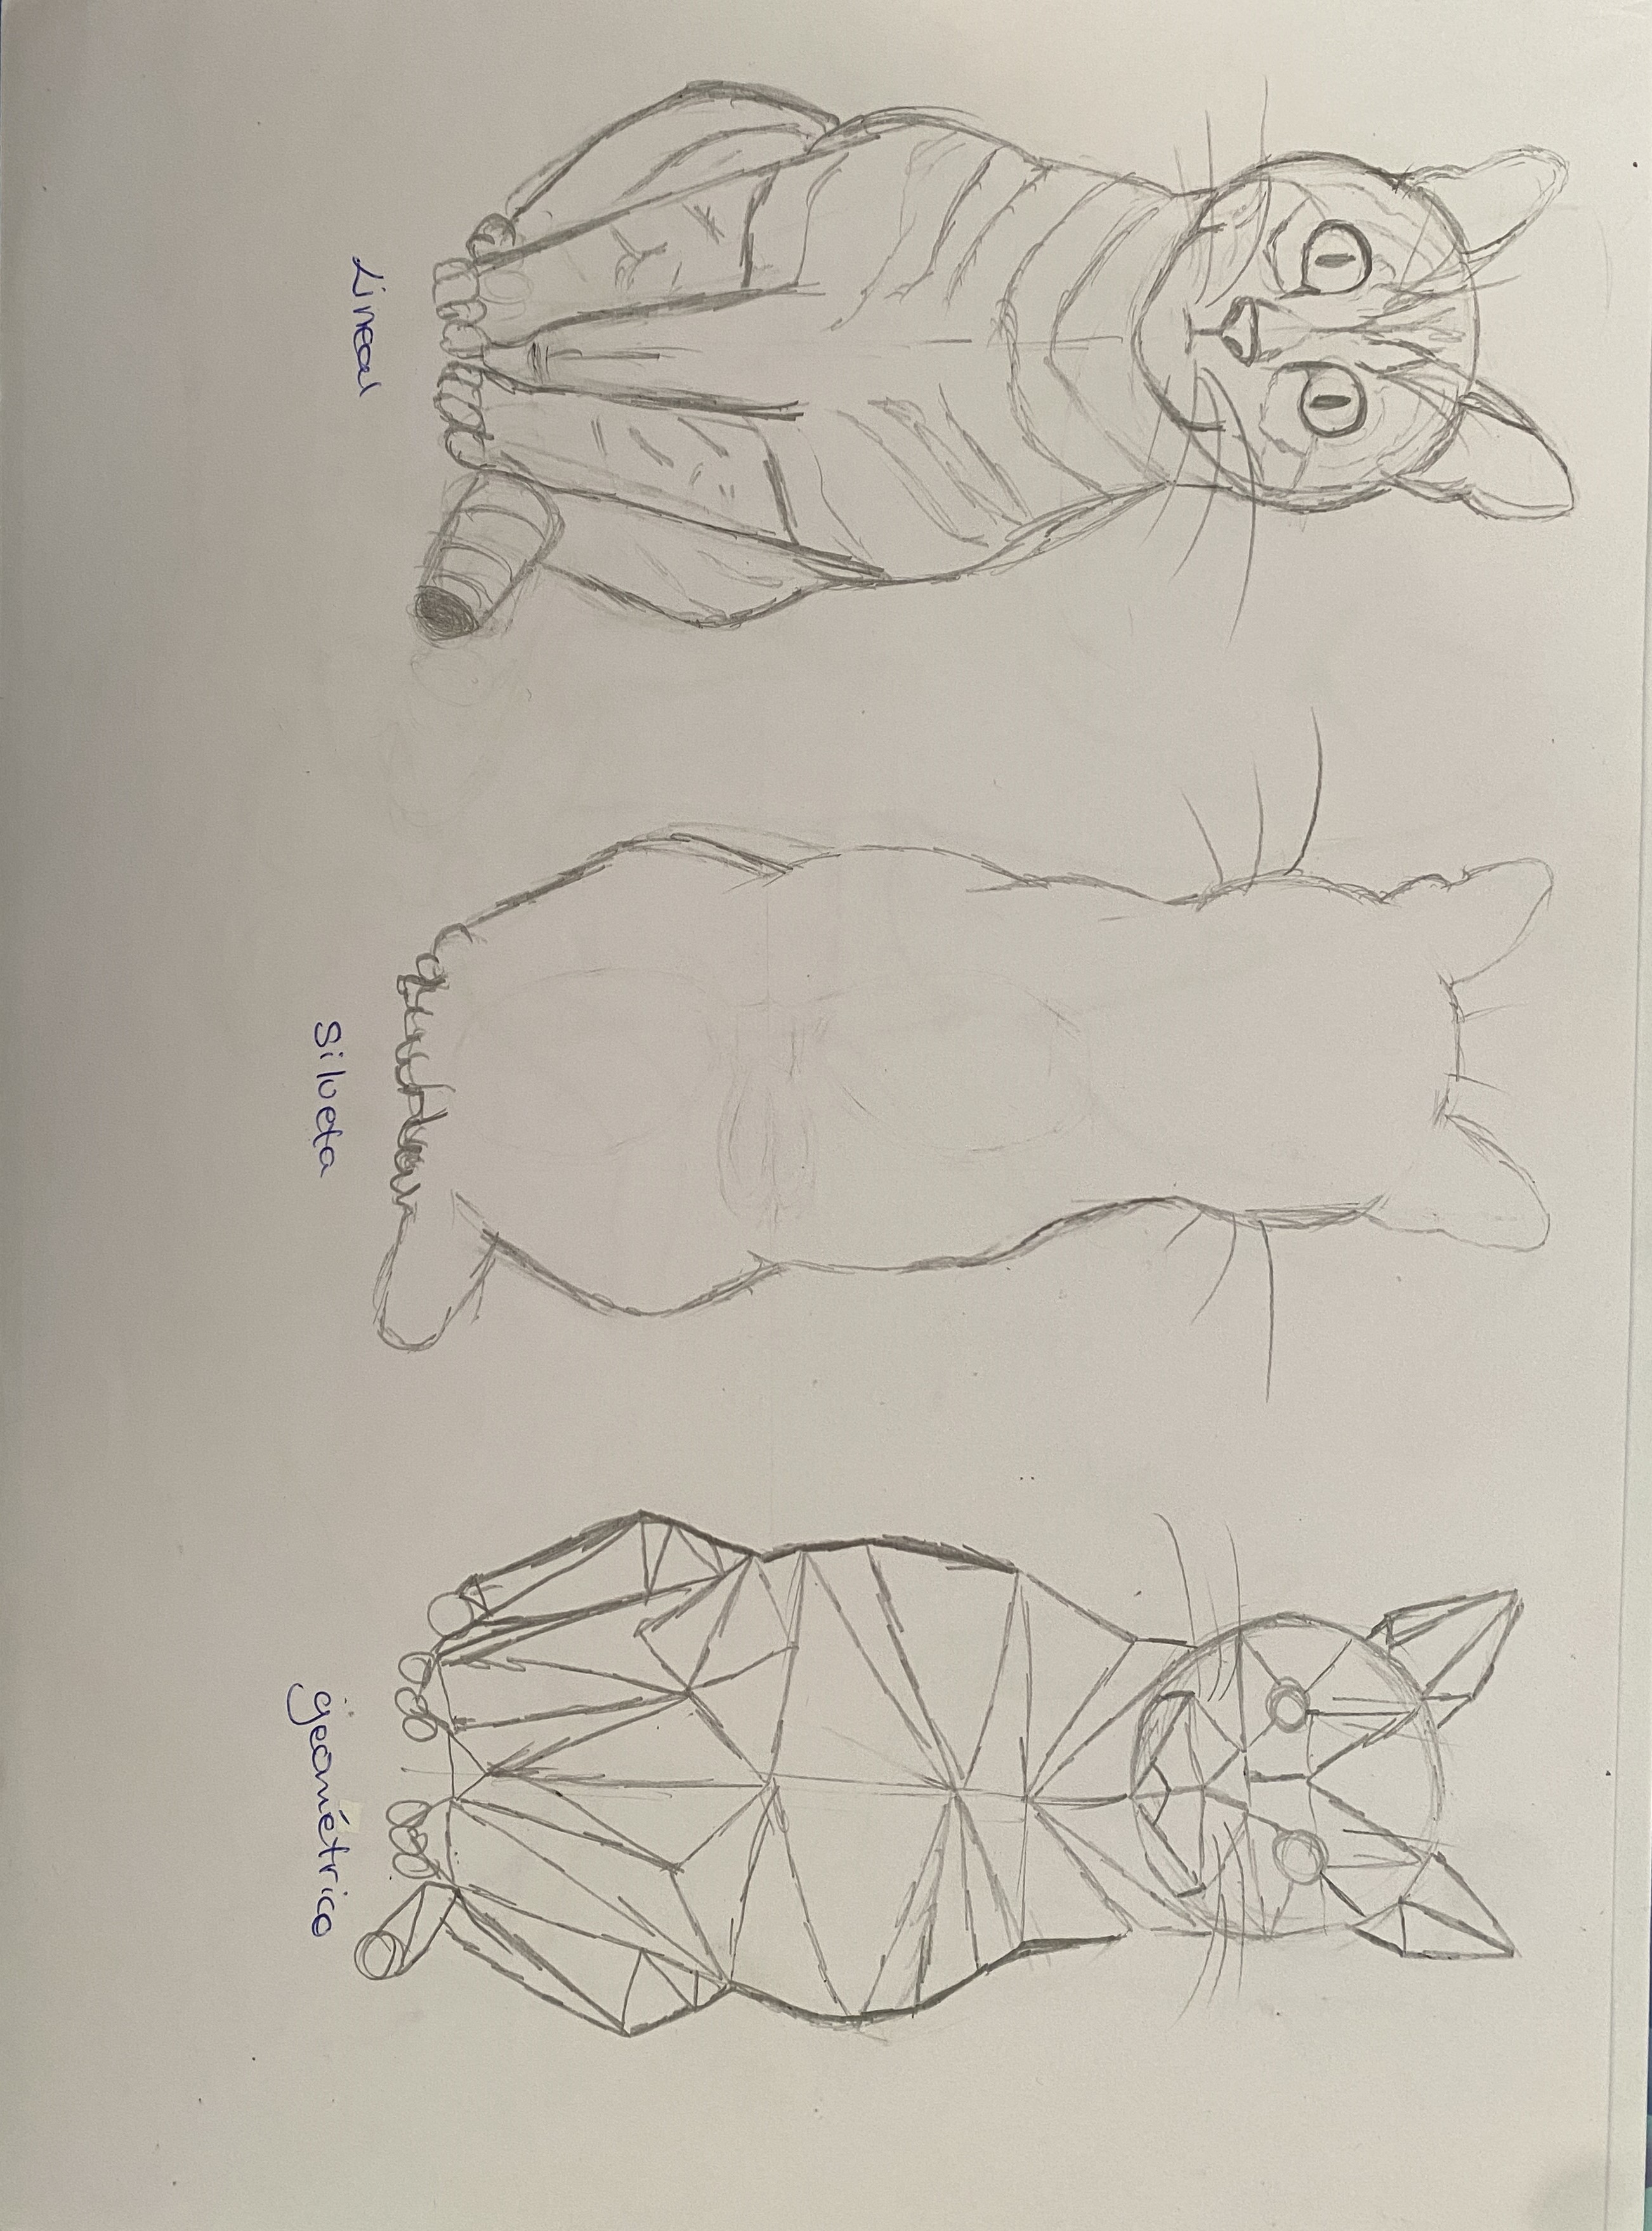 Lineal
Silueta
geométrico